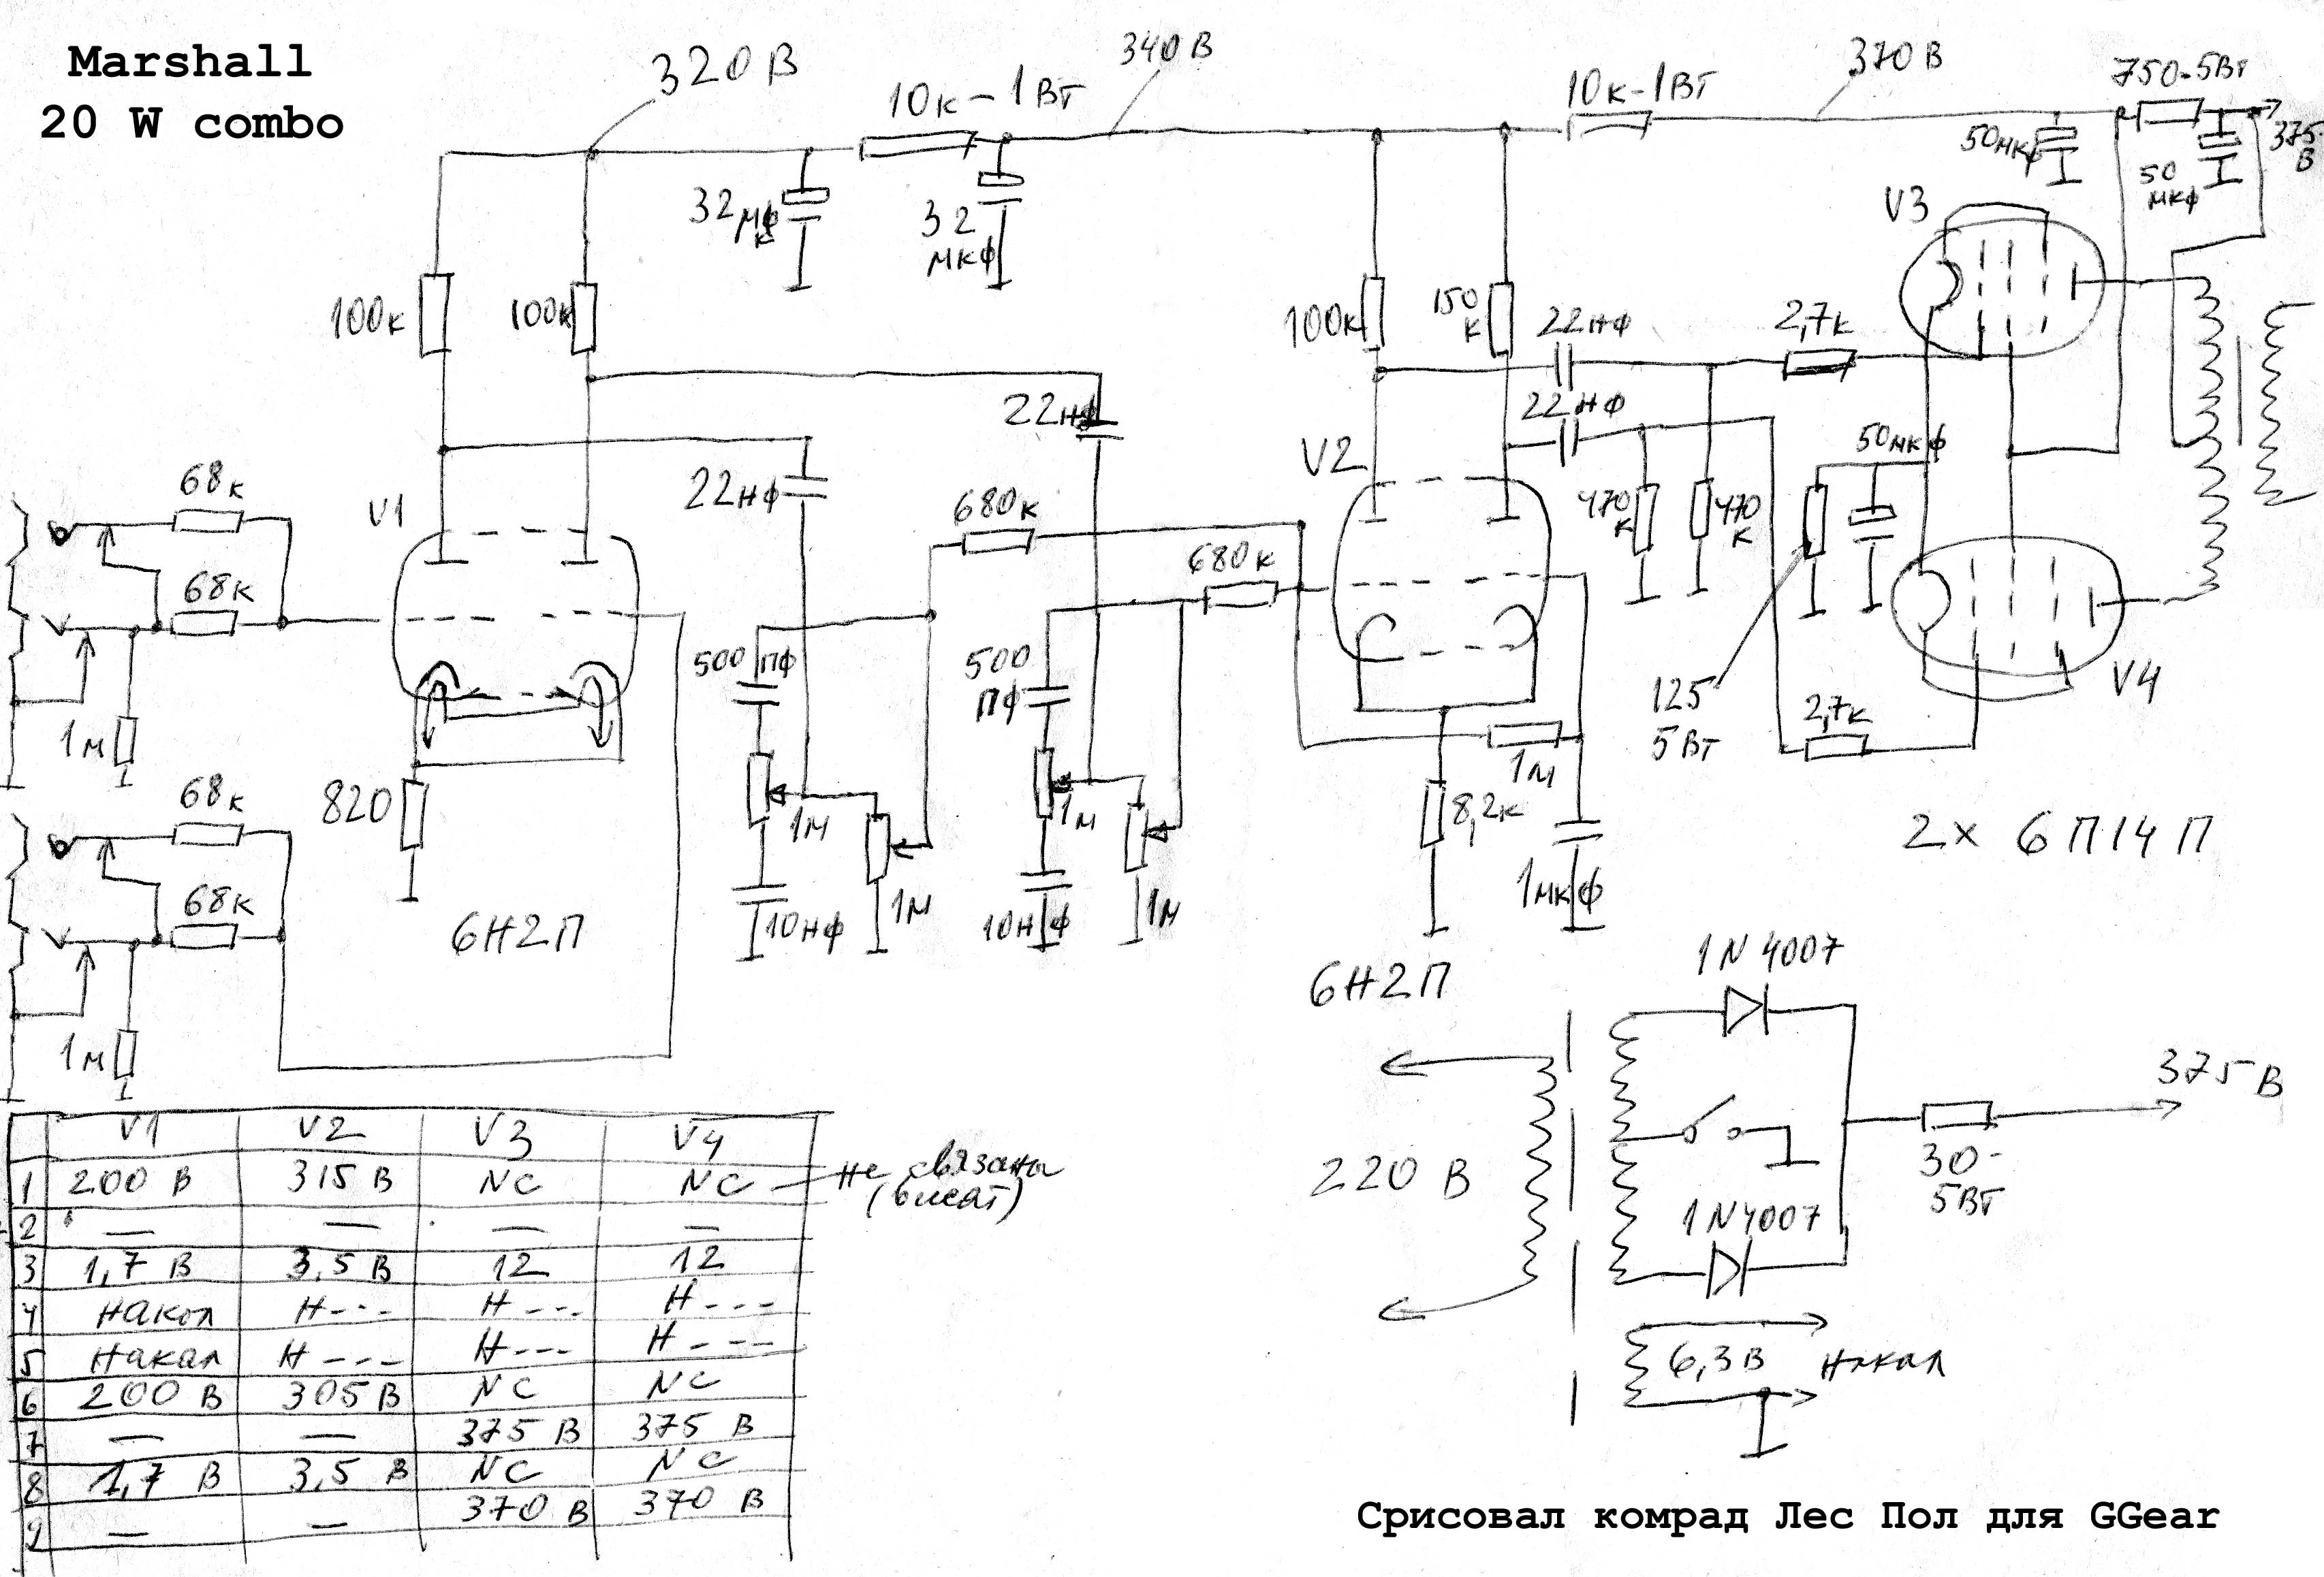 Marshall
20 W combo
320 В
10к – 1Вт
340 В
10к-1Вт
370 В
750-5Вт
375-
В
32 мкф
32
мкф
50мкф
50
мкф
V3
100к
100к
100к
150
к
22нф
2,7к
22нф
22нф
50мкф
68к
V1
22нф
680к
V2
470
к
470
к
68к
680к
500 пф
500
пф
125
5Вт
2,7к
V4
1м
820
1м
1м
8,2к
1м
68к
68к
6Н2П
10нф
1м
10нф
1м
1мкф
2 х 6П14П
1м
6Н2П
1N4007
220 В
375 В
30-
5Вт
1N4007
6,3В
Накал
V1 V2 V3 V4
1 200 В 315 В NC NC не связаны
(висят)
2 — — — —
3 1,7 В 3,5 В 12 12
4 Накал Н--- Н--- Н---
5 Накал Н --- Н--- Н ---
6 200 В 305 В NC NC
7 — — 375 В 375 В
8 1,7 В 3,5 В NC NC
9 — — 370 В 370 В
Срисовал комрад Лес Пол для GGear